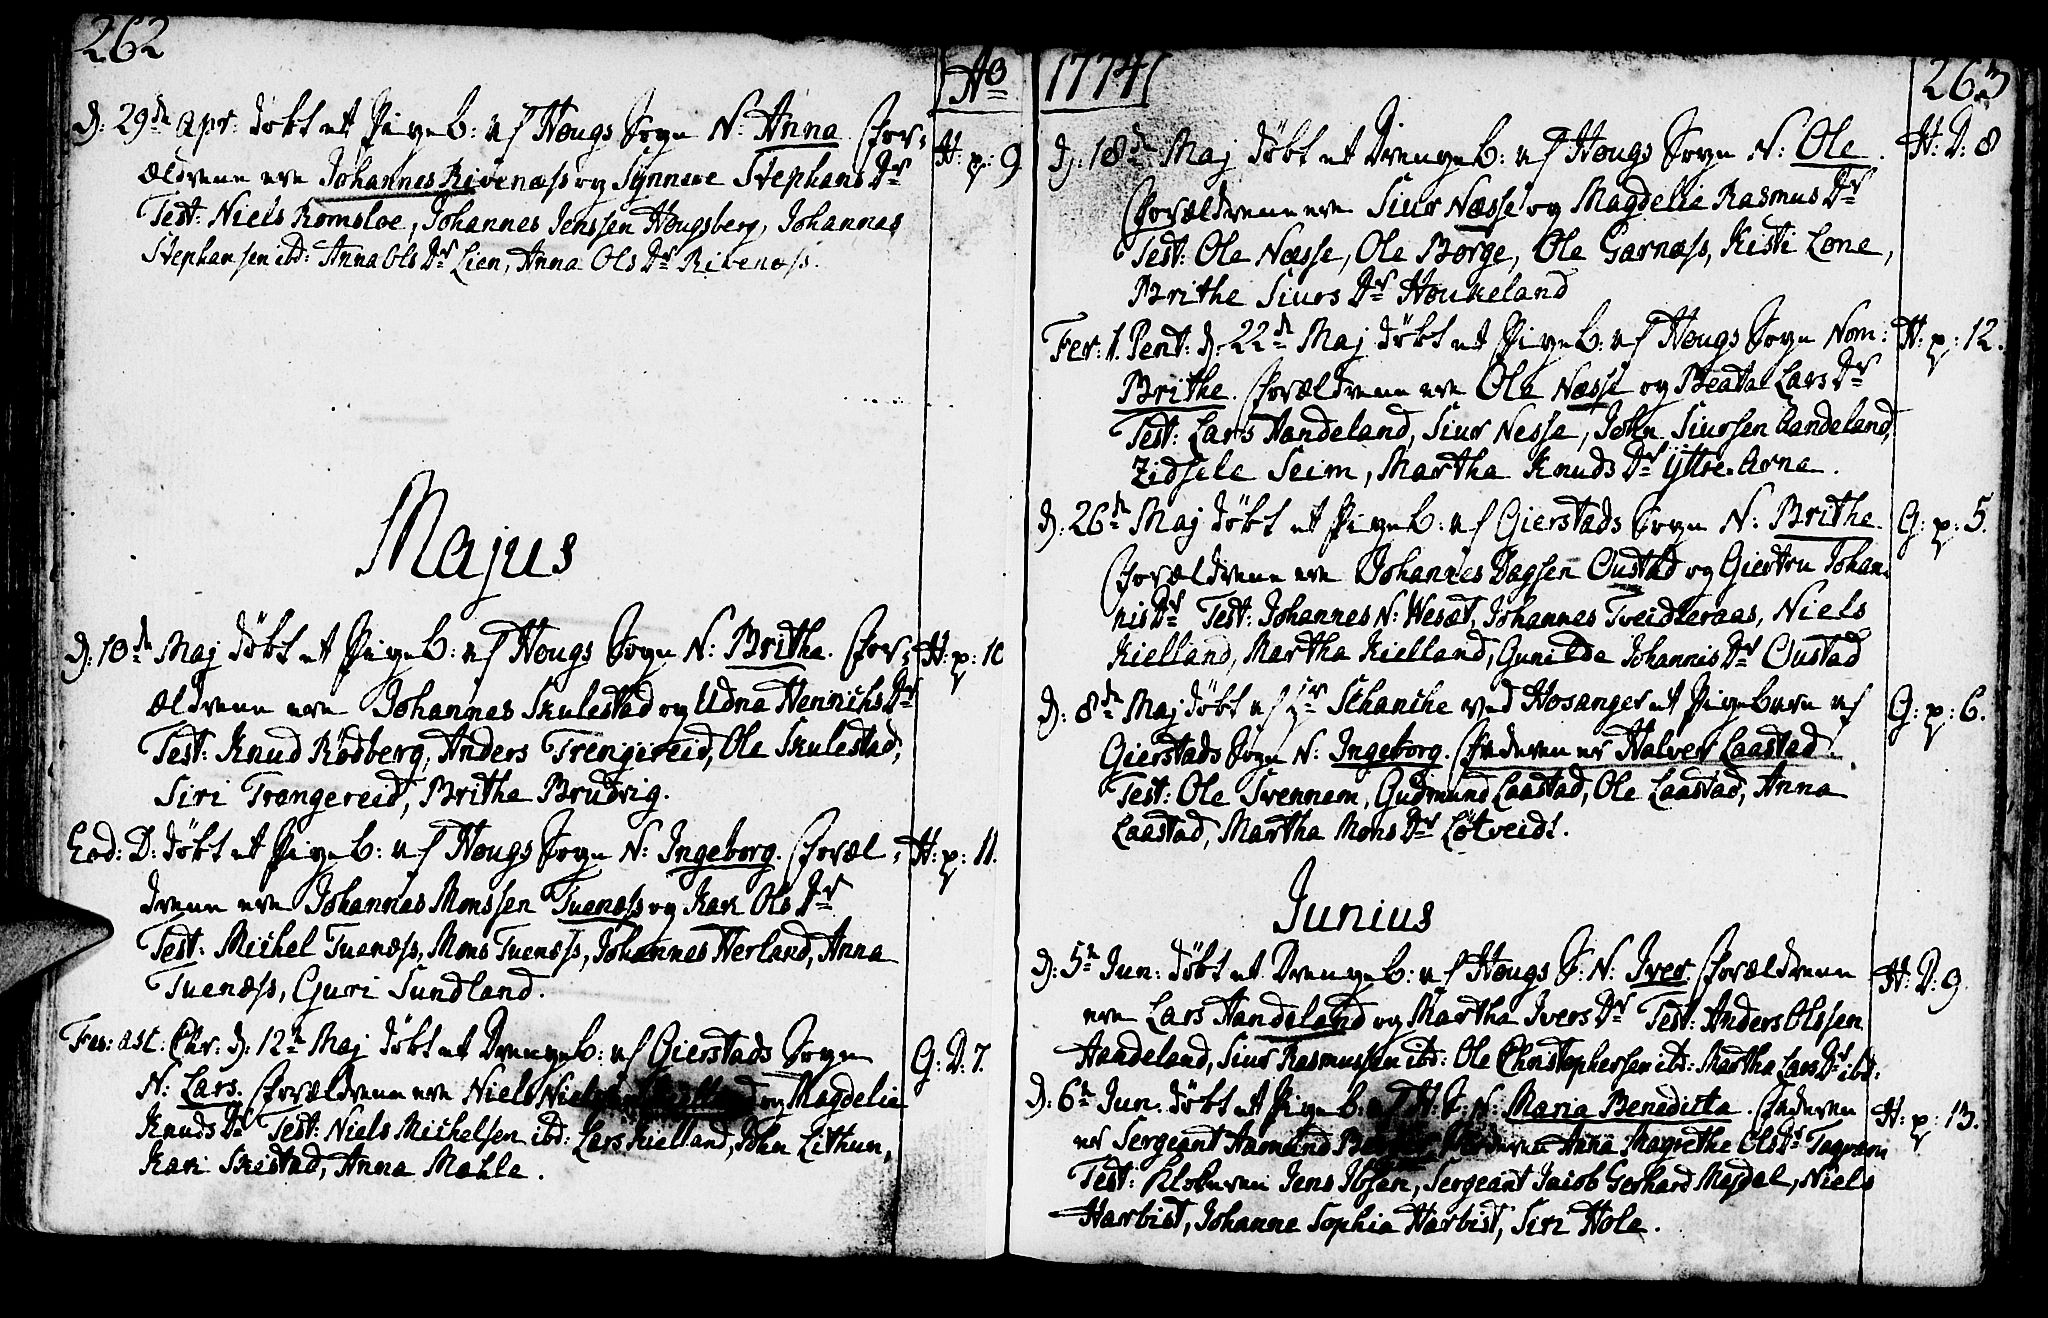 262
Aõ
D: 29de Apr: døbt et Pigeb: af Hougs Sogn N: Anna. For= H: p: 9
ældrene ere Johannes Rivenæss og Synneve Stephans Dr
Test: Niels Romsloe, Johannes Jenssen Hougsberg, Johannes
Stephansen ibd: Anna Ols Dr Lien, Anna Ols Dr Rivenæss.
Majus
D: 10de Maj døbt et Pigeb: af Hougs Sogn N: Brithe. For= H: p: 10
ældrene ere Johannes Skulestad og Udna Henrichs Dr
Test: Knud Rødberg, Anders Trengereid, Ole Skulestad,
Siri Trengereid, Brithe Brudvig.
Eod: D: døbt et Pigeb: af Hougs Sogn N: Ingeborg. Foræl= H: p: 11.
drene ere Johannes Monssen Tuenæss og Kari Ols Dr
Test: Michel Tuenæss, Mons Tuenæss, Johannes Herland, Anna
Tuenæss, Guri Sundland.
Fer: Asc. Chr: D: 12te Maj døbt et Drengeb: af Gierstads Sogn G: D: 7.
N: Lars. Forældrene ere Niels og Magdelie
Knuds Dr Test: Niels Michelsen ibd: Lars Kielland, John Lithun,
Kari Skistad, Anna Mæhle.
1774
263
D: 18de Maj døbt et Drengeb: af Hougs Sogn N: Ole. H: D: 8
Forældrene ere Siur Næsse og Magdelie Rasmus Dr
Test: Ole Næsse, Ole Borge, Ole Garnæss, Kisti Lone,
Brithe Siurs Dr Houkeland
Fer: 1. Pent: D: 22de Maj døbt et Pigeb: af Hougs Sogn Nom: H: p: 12.
Brithe. Forældrene ere Ole Næsse og Beata Lars Dr
Test: Lars Handeland, Siur Nesse, John Siursen Handeland,
Zidsele Seim, Martha Knuds Dr Yttre-Arne.
D: 26de Maj døbt et Pigeb: af Gierstads Sogn N: Brithe G: p: 5.
Forældrene ere Johannes Dagsen Oustad og Giertru Johan-
nis Dr Test: Johannes N: Wesæt, Johannes Tveidteraas, Niels
Kielland, Martha Kielland, Gunilde Johannis Dr Oustad
D: 8de Maj døbt af Hr Schanche ved Hosanger et Pigebarn af G: p: 6.
Gierstads Sogn N: Ingeborg. Faderen er Halver Laastad.
Test: Ole Svennem, Gudmund Laastad, Ole Laastad, Anna
Laastad, Martha Mons Dr Løtveidt.
Junius
D: 5te Jun: døbt et Drengeb: af Hougs S: N: Iver Forældrene H: D: 9.
ere Lars Handeland og Martha Ivers Dr Test: Anders Olssen
Handeland, Siur Rasmussen ibd: Ole Christophersen ibd: Martha Lars Dr ibd:
D: 6te Jun: døbt et Pigeb: af H: S: N: Maria Benedicta. Faderen H: p: 13.
er Sergeant Aamund Anna Magrethe Ols Dr
Test: Klokeren Jens Ibsen, Sergeant Jacob Gerhard Mejdal, Niels
Harbist, Johanne Sophia Harbist, Siri Hole.